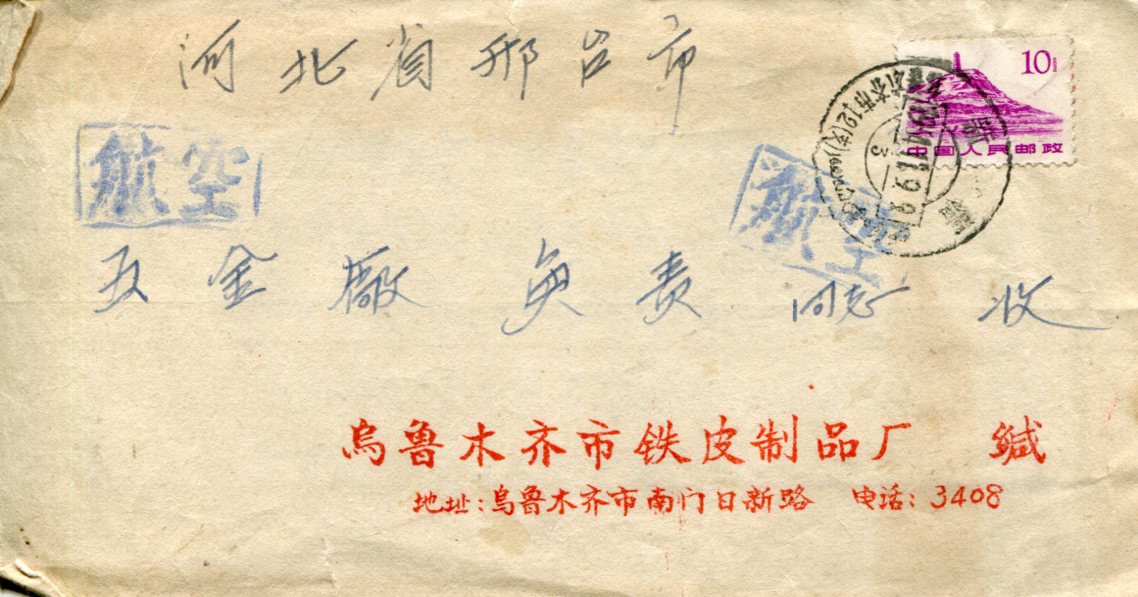 河北省邢台市
10分
中国人民邮政
航空
航空
五金廠 负责 同志 收
乌鲁木齐市铁皮制品厂 缄
地址:乌鲁木齐市南门日新路 电话:3408